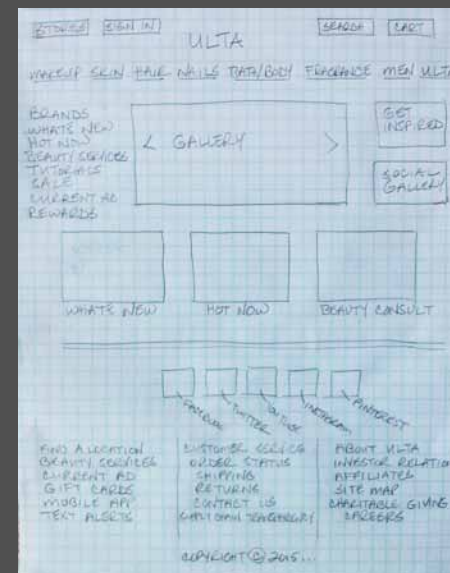 STORES SIGN IN SEARCH CART
ULTA
MAKEUP SKIN HAIR NAILS BATH/BODY FRAGRANCE MEN ULTA
BRANDS
WHATS NEW
HOT NOW
BEAUTY SERVICES
TUTORIALS
SALE
CURRENT AD
REWARDS
< GALLERY >
GET
INSPIRED
SOCIAL
GALLERY
WHATS NEW
HOT NOW
BEAUTY CONSULT
FACEBOOK
TWITTER
YOUTUBE
INSTAGRAM
PINTEREST
FIND A LOCATION
BEAUTY SERVICES
CURRENT AD
GIFT CARDS
MOBILE APP
TEXT ALERTS
CUSTOMER SERVICE
ORDER STATUS
SHIPPING
RETURNS
CONTACT US
SUPPLY CHAIN TRANSPARENCY
ABOUT ULTA
INVESTOR RELATION
AFFILIATES
SITE MAP
CHARITABLE GIVING
CAREERS
COPYRIGHT © 2015...